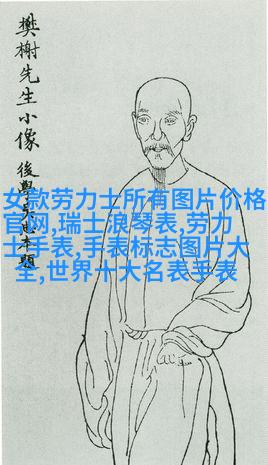 樊榭先生小像
後學本題
女款劳力士所有图片价格
官网,瑞士浪琴表,劳力
士手表,手表标志图片大
全,世界十大名表手表